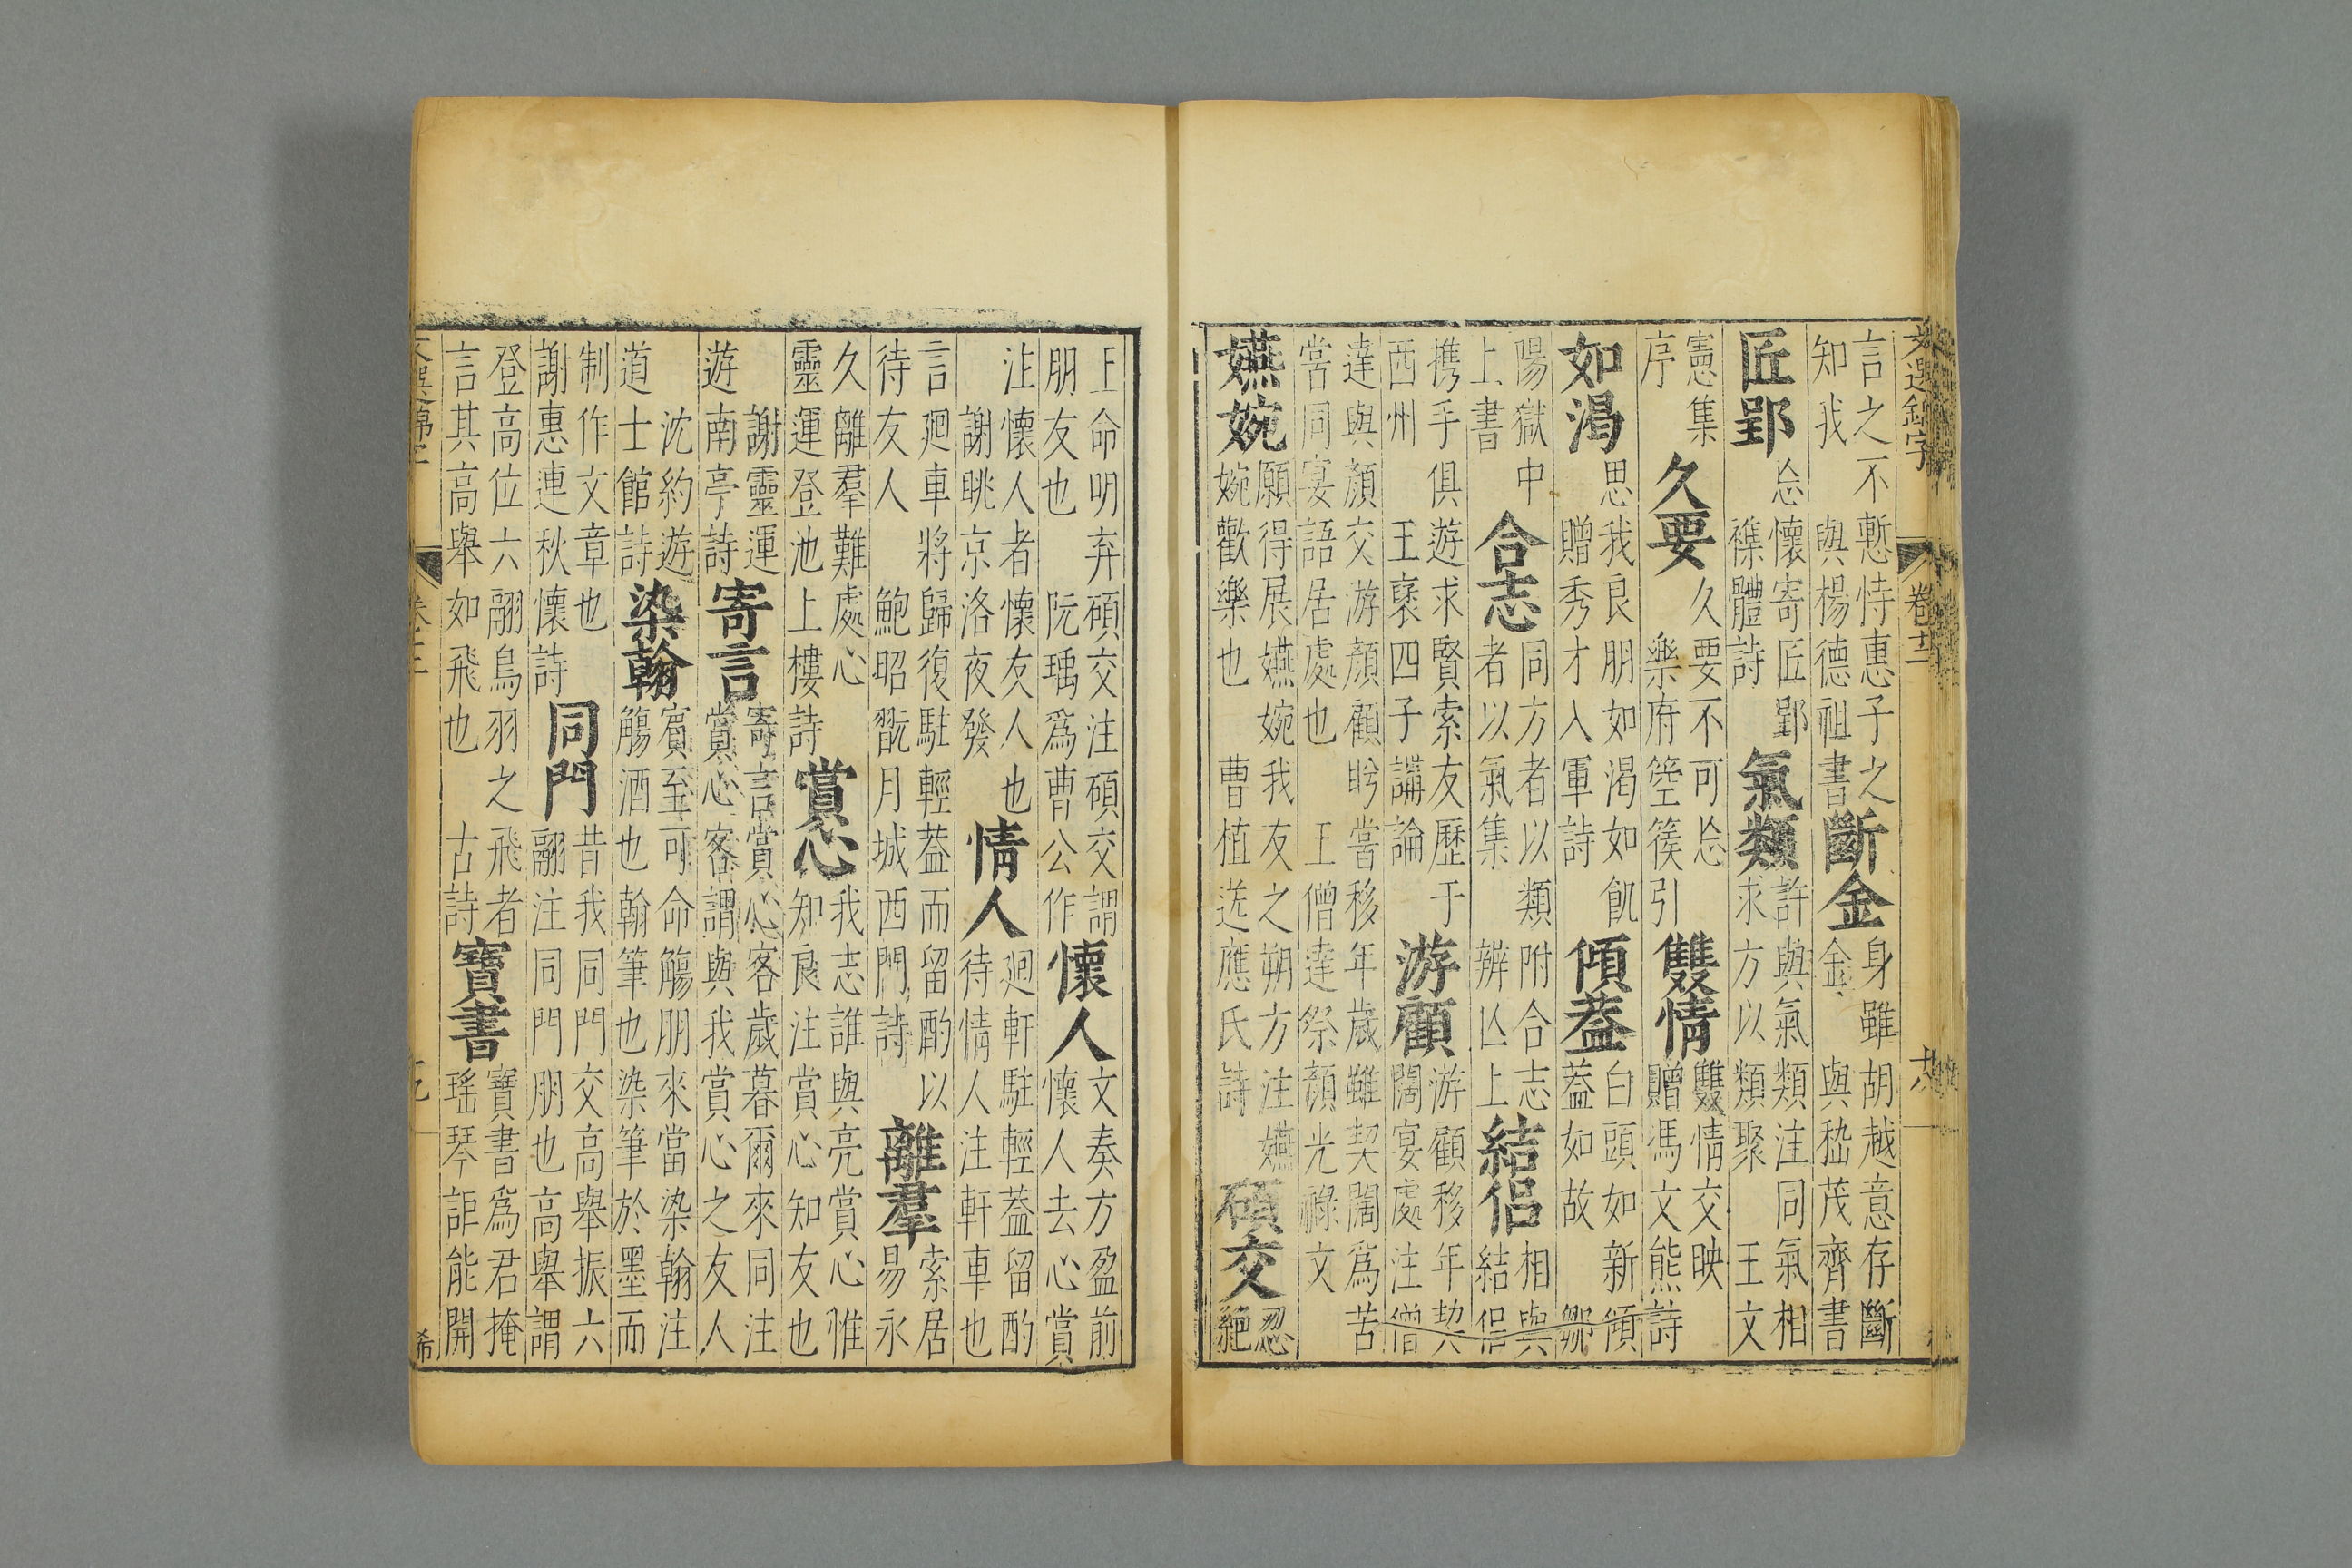 文選錦字 卷十二 十八
言之不慙恃惠子之知我 與楊德祖書 斷金 身雖胡越意存斷金 與嵇茂齊書
匠郢 忩懷寄匠郢襍體詩 氣類 許與氣類注同氣相求方以類聚 王文
憲集序 久要 久要不可忩樂府箜篌引 雙情 雙情交映贈馮文熊詩
如渴 思我良朋如渴如飢贈秀才入軍詩 傾蓋 白頭如新傾蓋如故 鄒
陽獄中上書 合志 同方者以類附合志者以氣集 辨亾上 結侶 相與結侶
携手俱遊求賢索友歷于西州 王褒四子講論 游顧 游顧移年契闊宴處注僧
達與顏交游顏顧眄嘗移年歲雖契闊爲苦嘗同宴語居處也 王僧達祭顏光祿文
嬿婉 願得展嬿婉我友之朔方注嬿婉歡樂也 曹植送應氏詩 碩交 忍絕
王命明弃碩交注碩交謂朋友也 阮瑀爲曹公作 懷人 文奏方盈前懷人去心賞
注懷人者懷友人也謝眺京洛夜發 情人 廻軒駐輕蓋留酌待情人注軒車也
言廻車將歸復駐輕蓋而留酌以待友人 鮑昭翫月城西門詩 離羣 索居易永
久離羣難處心 靈運登池上樓詩 賞心 我志誰與亮賞心惟知良注賞心知友也
謝靈運遊南亭詩 寄言 寄言賞心客歲暮爾來同注賞心客謂與我賞心之友人
沈約遊道士館詩 染翰 賓至可命觴朋來當染翰注觴酒也翰筆也染筆於墨而
制作文章也謝惠連秋懷詩 同門 昔我同門交高舉振六翮注同門朋也高舉謂
登高位六翮鳥羽之飛者言其高舉如飛也 古詩 寶書 寶書爲君掩瑤琴詎能開
希